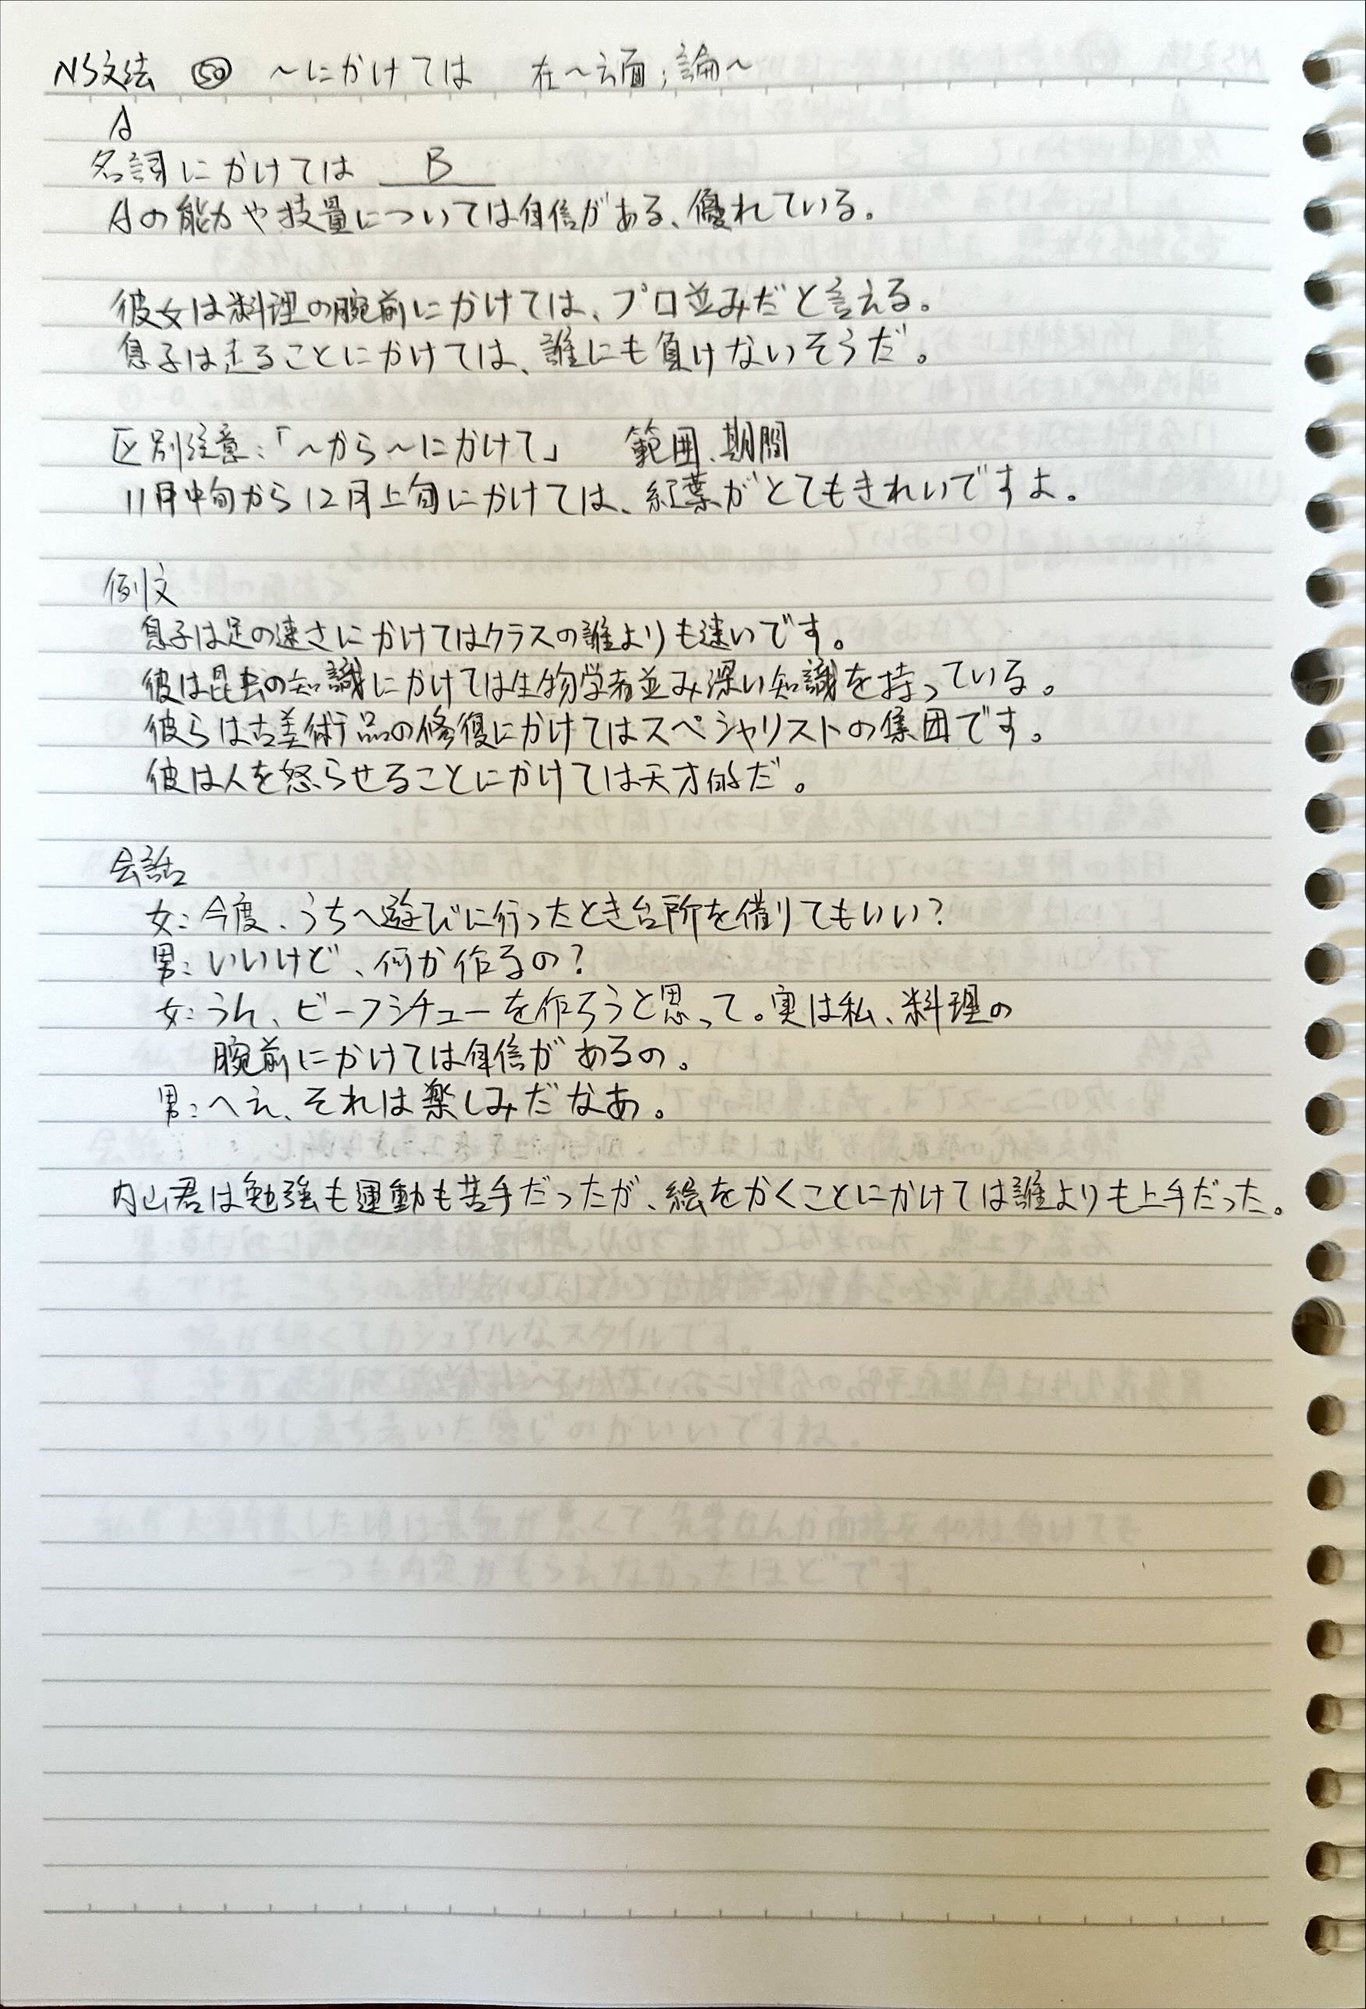 N5文法 ㊿ ～にかけては 在～方面；論～
A
名詞にかけては B
Aの能力や技量については自信がある、優れている。
彼女は料理の腕前にかけては、プロ並みだと言える。
息子は走ることにかけては、誰にも負けないそうだ。
区別注意：「～から～にかけて」 範囲、期間
11月中旬から12月上旬にかけては、紅葉がとてもきれいですよ。
例文
息子は足の速さにかけてはクラスの誰よりも速いです。
彼は昆虫の知識にかけては生物学者並み深い知識を持っている。
彼らは古美術品の修復にかけてはスペシャリストの集団です。
彼は人を怒らせることにかけては天才的だ。
会話
女：今度、うちへ遊びに行ったとき台所を借りてもいい？
男：いいけど、何か作るの？
女：うん、ビーフシチューを作ろうと思って。実は私、料理の
腕前にかけては自信があるの。
男：へえ、それは楽しみだなあ。
内山君は勉強も運動も苦手だったが、絵をかくことにかけては誰よりも上手だった。